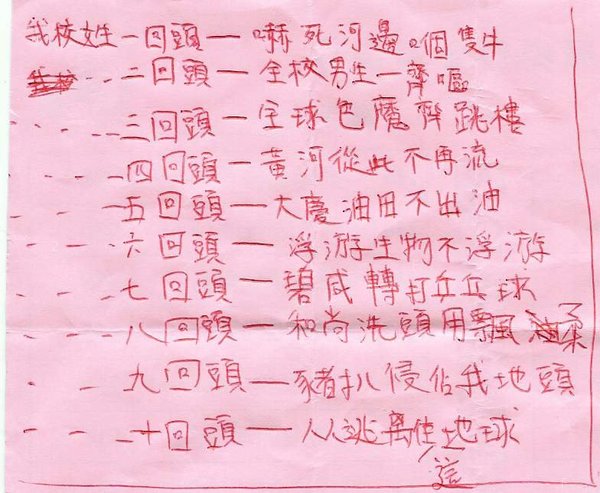 我校女生一回頭—嚇死河邊嗰隻牛
我校---二回頭—全校男生一齊嘔
----三回頭—全球色魔齊跳樓
----四回頭—黃河從此不再流
---五回頭—大慶油田不出油
---六回頭—浮游生物不浮游
---七回頭—碧咸轉打乒乓球
---八回頭—和尚洗頭用飄柔
--九回頭—豬扒侵佔我地頭
---十回頭—人人逃離
地球
這